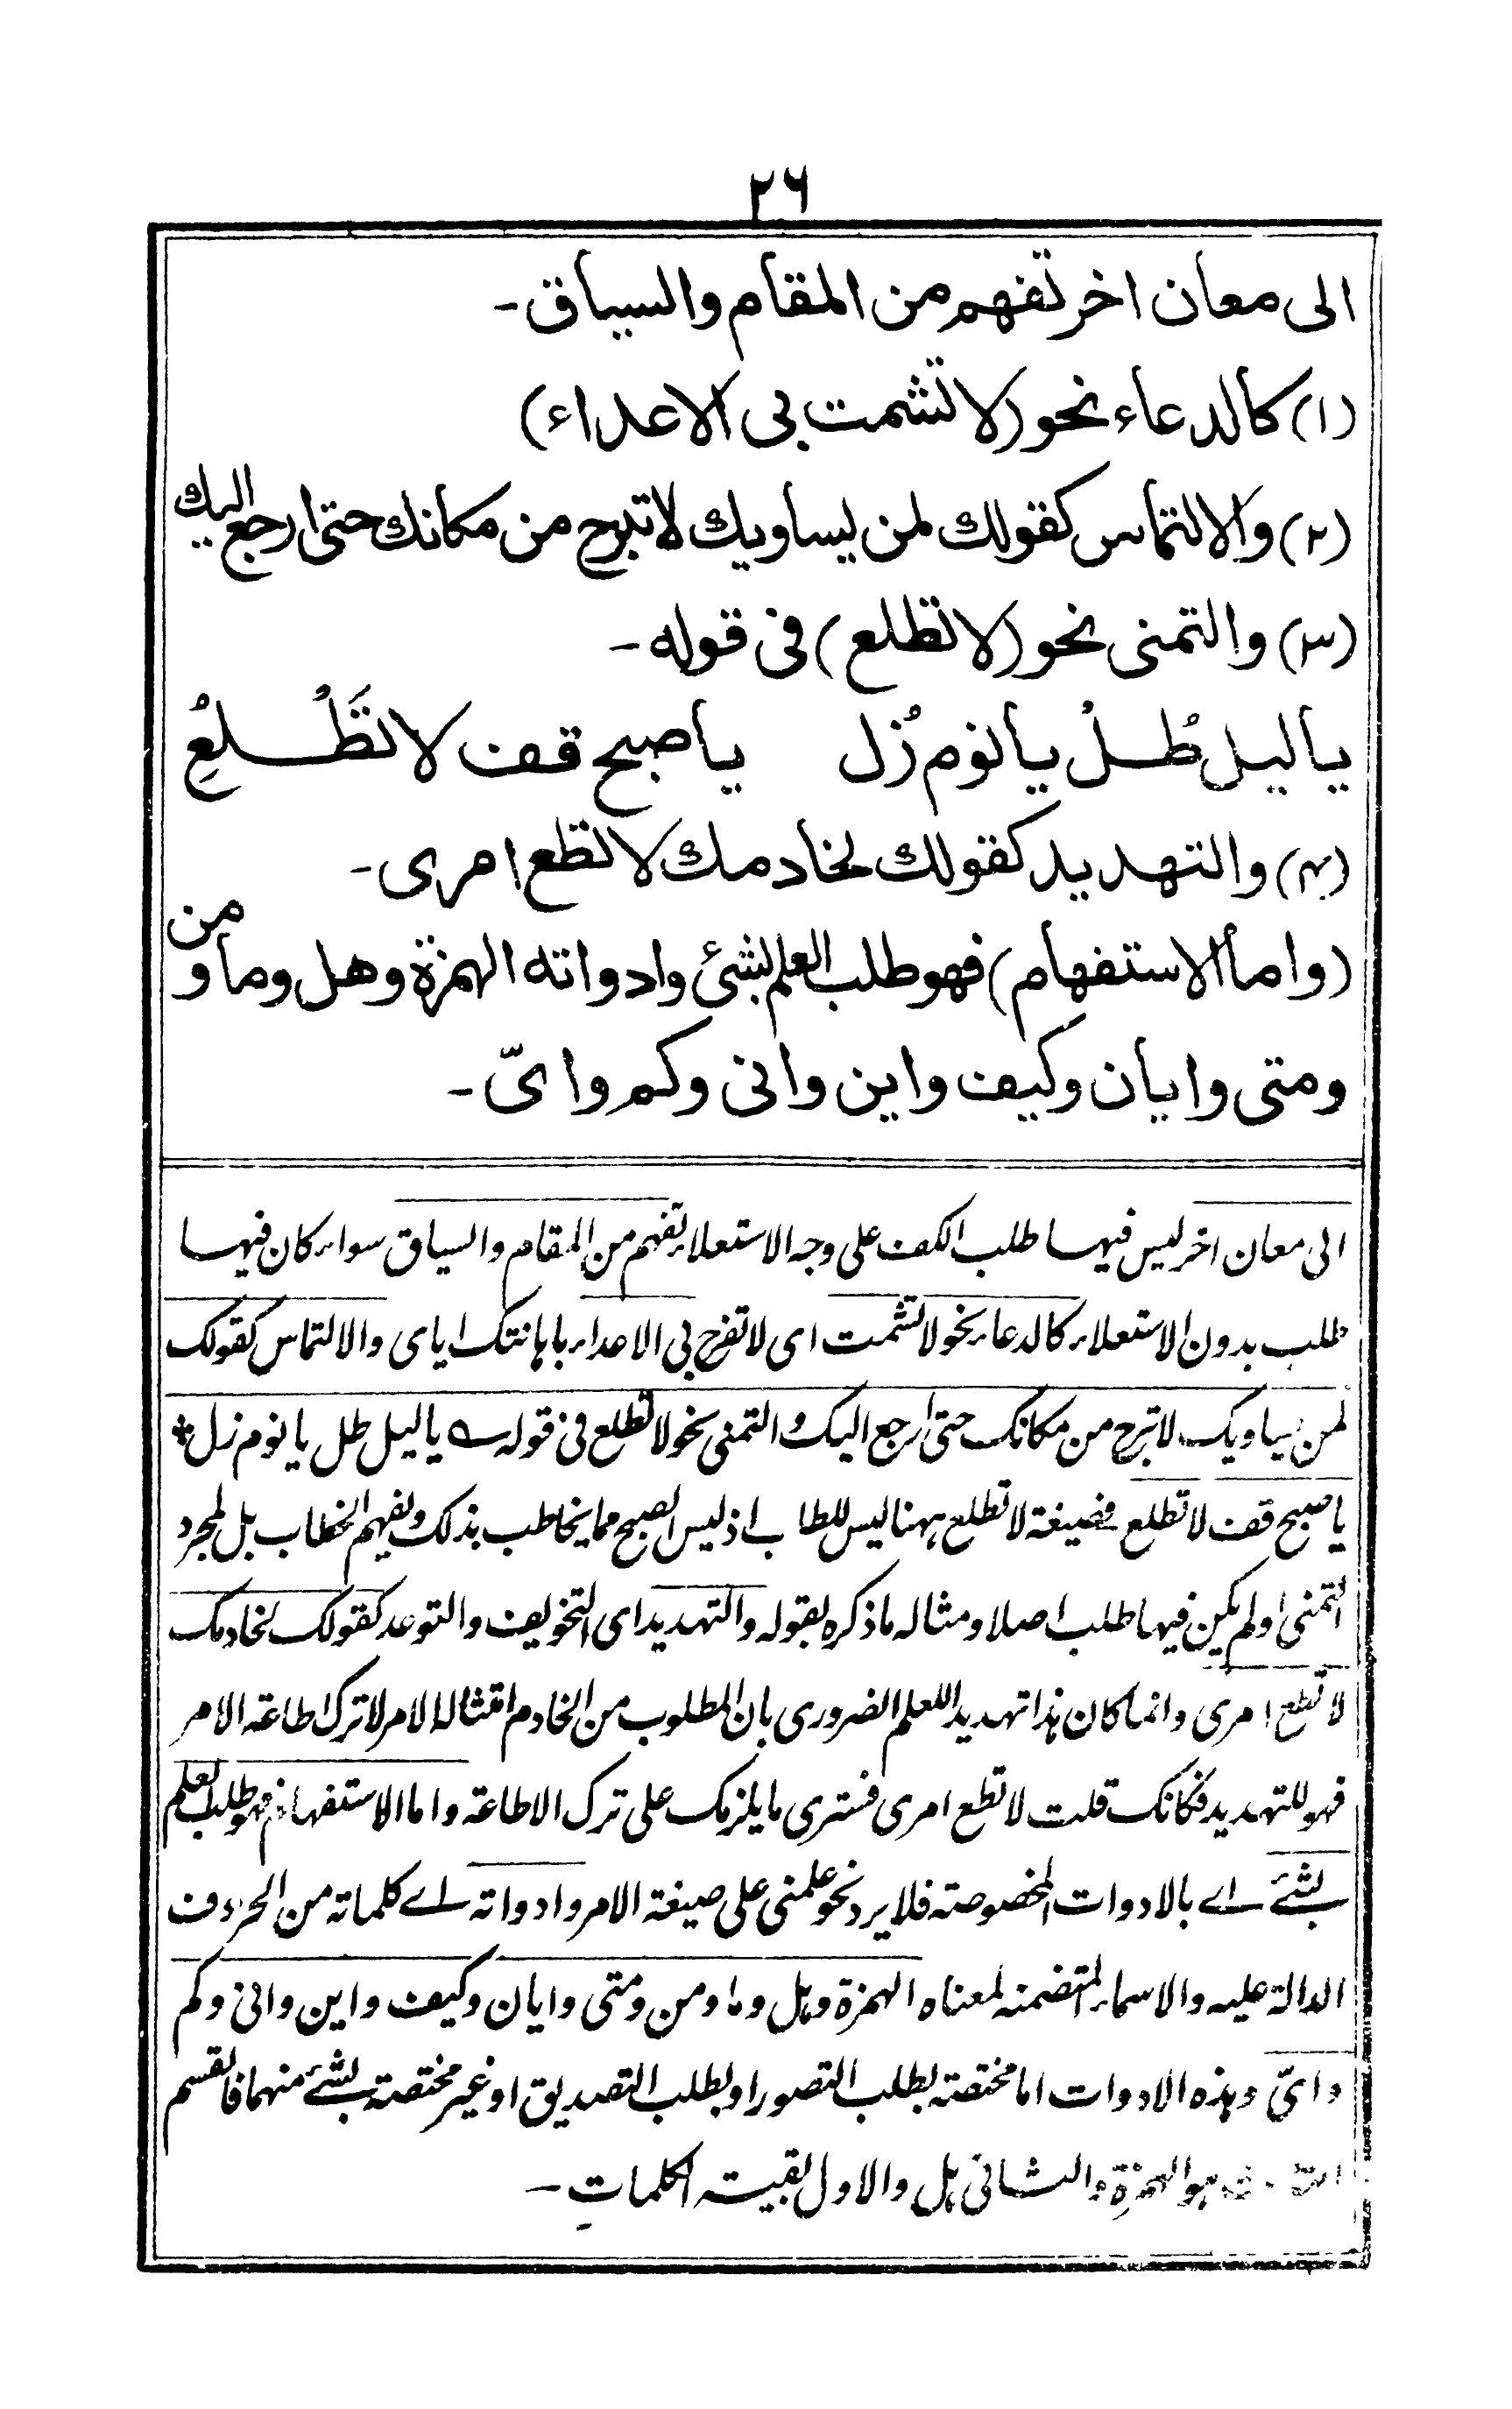 ٢٦
الى معان اخر تفهم من المقام والسياق۔
(١) كالدعاء نحو (لا تشمت بى الاعداء)
(٢) والالتماس كقولك لمن يساويك لا تبرح من مكانك حتى ارجع اليك
(٣) والتمنى نحو (لا تطلع) فى قوله۔
يا ليل طُلْ يا نوم زُل يا صبح قف لا تَطْلُعِ
(۴) والتهديد كقولك لخادمك لا تطع امرى۔
(واما الاستفهام) فهو طلب العلم بشئ وادواته الهمزة وهل وما ومن
ومتى وايان وكيف واين وانى وكم واىّ۔
الى معان اخر ليس فيها طلب الكف على وجه الاستعلاء تفهم من المقام والسياق سواء كان فيها
طلب بدون الاستعلاء كالدعاء نحو لا تشمت اى لا تفرح بى الاعداء باهانتك اياى والالتماس كقولك
لمن يساويك لا تبرح من مكانك حتى ارجع اليك والتمنى نحو لا تطلع فى قوله ؎ يا ليل طل يا نوم زل *
يا صبح قف لا تطلع فصيغة لا تطلع ههنا ليس للطلب اذ ليس الصبح مما يخاطب بذلك ولفهم الخطاب بل لمجرد
التمنى او لم يكن فيها طلب اصلا ومثاله ما ذكره بقوله والتهديد اى التخويف والتوعد كقولك لخادمك
لا تطع امرى وانما كان هذا تهديدا للعلم الضرورى بان المطلوب من الخادم امتثال الامر لا ترك اطاعة الامر
فهو للتهديد فكانك قلت لا تطع امرى فسترى ما يلزمك على ترك الاطاعة واما الاستفهام فهو طلب العلم
بشئ اے بالادوات المخصوصة فلا يرد نحو علمنى على صيغة الامر وادواته اے كلماته من الحروف
الدالة عليه والاسماء المتضمنه لمعناه الهمزة وهل وما ومن ومتى وايان وكيف واين وانى وكم
واىّ وهذه الادوات اما مختصة بطلب التصور او بطلب التصديق او غير مختصة بشئ منهما فالقسم
هو الهمزة والثانى هل والاول بقية الكلمات۔